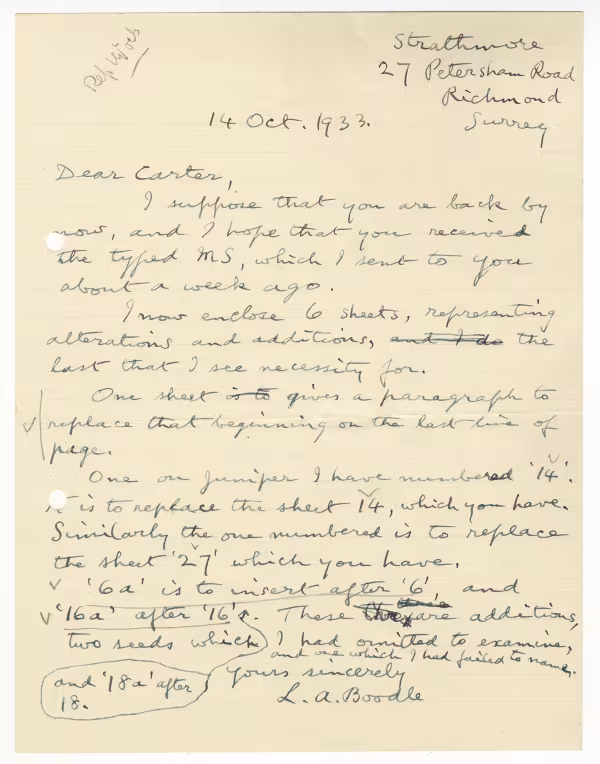 Strathmore
27 Petersham Road
Richmond
Surrey
14 Oct. 1933.
Dear Carter,
I suppose that you are back by
now, and I hope that you received
the typed MS, which I sent to you
about a week ago.
I now enclose 6 sheets, representing
alterations and additions, and I do the
last that I see necessity for.
One sheet is to gives a paragraph to
replace that beginning on the last line of
page.
One on Juniper I have numbered '14'.
It is to replace the sheet 14, which you have.
Similarly the one numbered is to replace
the sheet '27' which you have.
'6a' is to insert after '6', and
'16a' after '16'. These are additions,
two seeds which I had omitted to examine,
and one which I had failed to name.
Yours sincerely
L. A. Boodle
and '18a' after
18.